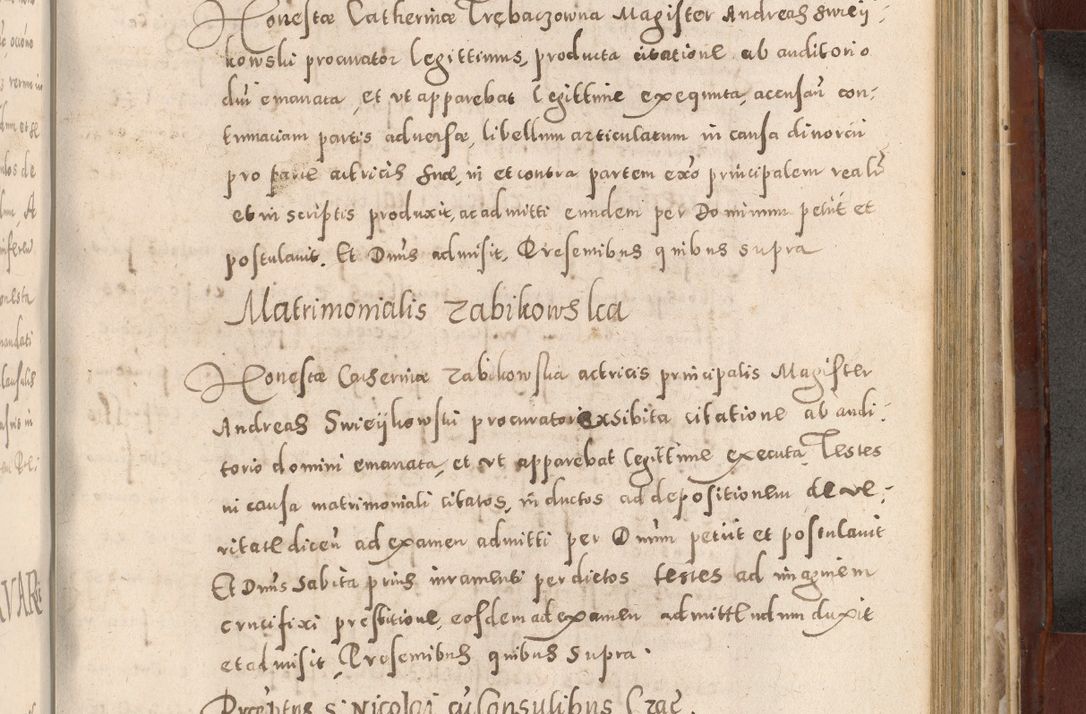 Honestæ Catherinæ Trębaczowna Magister Andreas Swiey-
kowski procurator legittimus, producta citatione ab auditorio
dni emanata, et vt apparebat legittime exequuta, acensan con-
tumaciam partis adversæ, libellum articulatum in causa divorcii
pro parte actricis suæ, in et contra partem exo principalem realr
et in scriptis produxit, ac admitti eundem per Dominum petiit et
postulavit. Et Dnus admisit. Presentibus quibus supra
Matrimonialis Zabikowska
Honestæ Catherinæ Zabikowska actricis principalis Magister
Andreas Swieijkowski procurator exhibita citatione ab audi-
torio domini emanata, et vt apparebat legittime executa, Testes
in causa matrimoniali citatos, inductos ad depositionem de ve-
ritate dicen ad examen admitti per Dnum petiit et postulavit
Et Dnus habita prius iuramenti per dictos testes ad imaginem
crucifixi prestitione, eosdem ad examen admittendum duxit
et admisit, Presentibus quibus supra.
S. Nicolai cu Consulibus Crac.